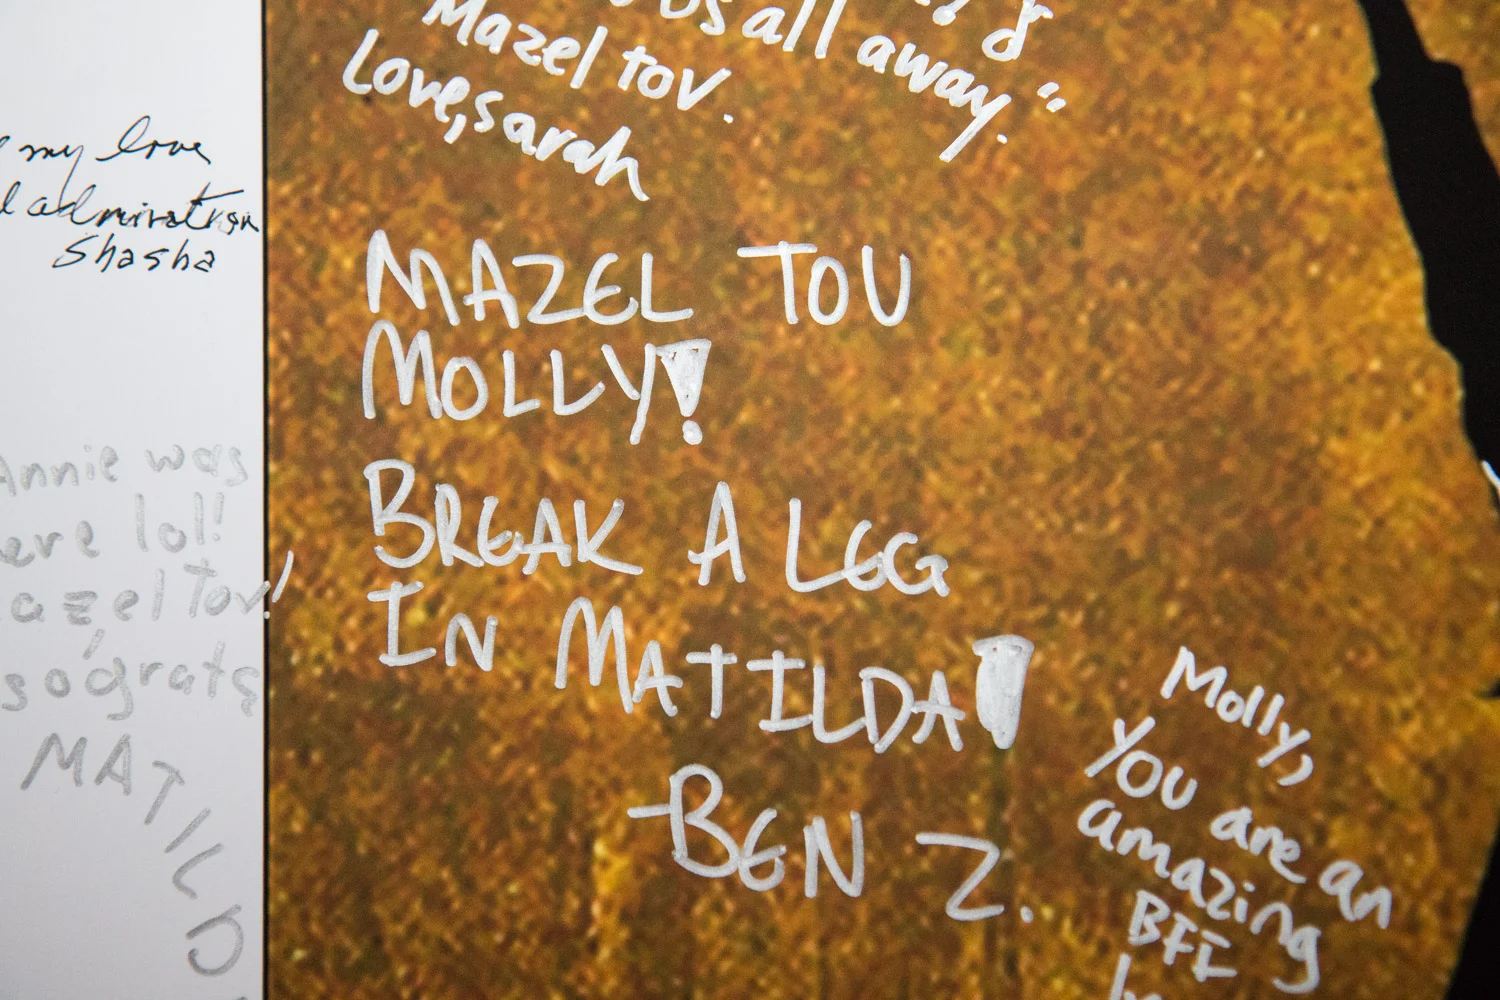 my love
admiration
Shasha
Annie was
lol!
Tov!
MATILD
all away."
Mazel tov.
Love, sarah
MAZEL TOV
MOLLY!
BREAK A LEG
IN MATILDA!
-BEN Z.
Molly,
you are an
amazing
BFF